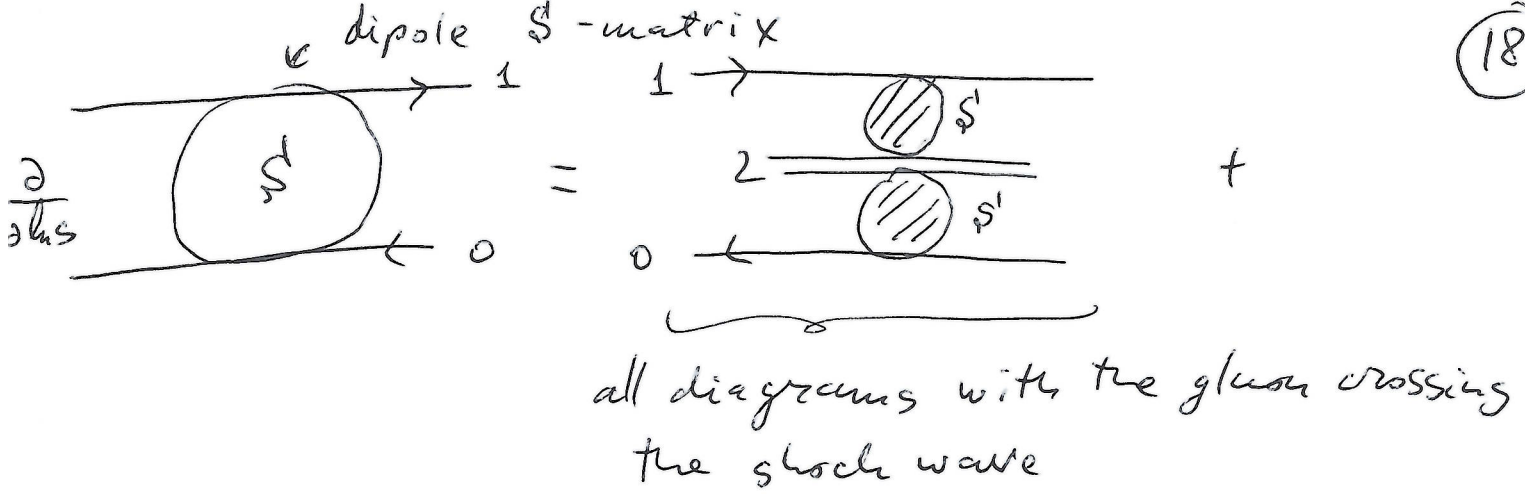 dipole S-matrix
18
1
1
S
S
∂
∂lns
=
2
+
S
0
0
all diagrams with the gluon crossing
the shock wave